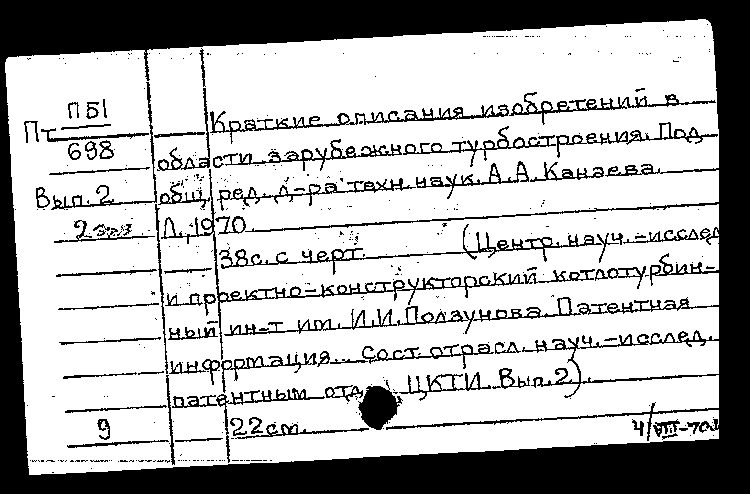 ПБ1
Пт
698
Вып. 2
2 экз
9
Краткие описания изобретений в
области зарубежного турбостроения. Под
общ. ред. д-ра техн. наук. А.А. Канаева.
Л., 1970.
38с. с черт. (Центр. науч.-исслед
и проектно-конструкторский котлотурбин-
ный ин-т им. И.И. Ползунова. Патентная
информация.. Сост. отрасл. науч.-исслед.
патентным отд. ЦКТИ. Вып. 2).
22см.
4/VIII-70